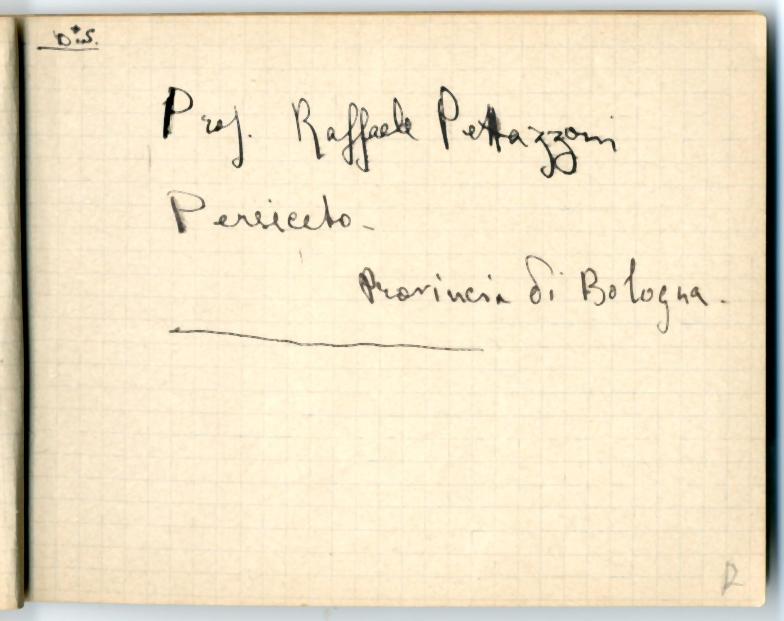 Prof. Raffaele Pettazzoni
Persiceto -
Provincia di Bologna.